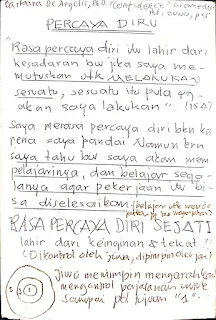 Barbara De Angelis, Ph.D. "Confidence" Gramedia
Jkt. 2000, p.15
PERCAYA DIRI
"Rasa percaya diri itu lahir dari
kesadaran bw jika saya me-
mutuskan utk MELAKUKAN
sesuatu, sesuatu itu pula yg
akan saya lakukan"
Saya merasa percaya diri bkn ka
rena saya pandai. Namun krn
saya tahu bw saya akan mem
pelajarinya, dan belajar sega-
lanya agar pekerjaan itu bi-
sa diselesaikan.
RASA PERCAYA DIRI SEJATI
lahir dari keinginan & tekad "
(Dikontrol oleh jiwa, dipimpin
Jiwa memimpin mengarahkan
mengontrol perjalanan untuk
sampai pd tujuan "1".